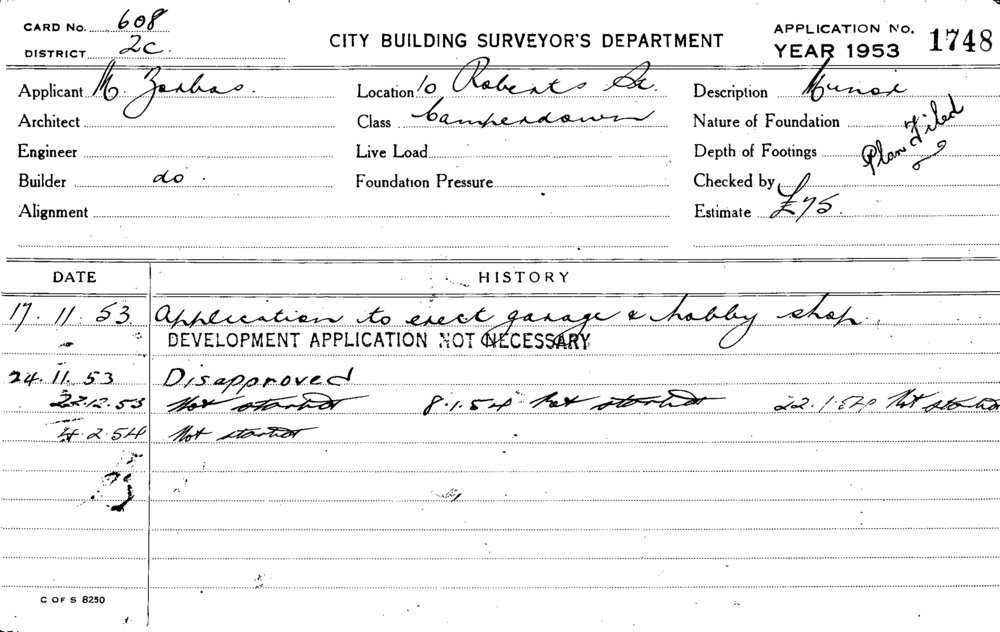 CARD No. 608
DISTRICT 2C.
CITY BUILDING SURVEYOR'S DEPARTMENT
APPLICATION No.
YEAR 1953
1748
Applicant M. Zorbas.
Location 10 Roberts St.
Description Minor
Architect
Class Camperdown
Nature of Foundation
Engineer
Live Load
Depth of Footings
Plan Filed
Builder do.
Foundation Pressure
Checked by
Alignment
Estimate £75.
DATE HISTORY
17.11.53 Application to erect garage & hobby shop.
DEVELOPMENT APPLICATION NOT NECESSARY
24.11.53 Disapproved
22.12.53 Not started 8.1.54 Not started 22.1.54 Not started
4.2.54 Not started
C OF S 8250